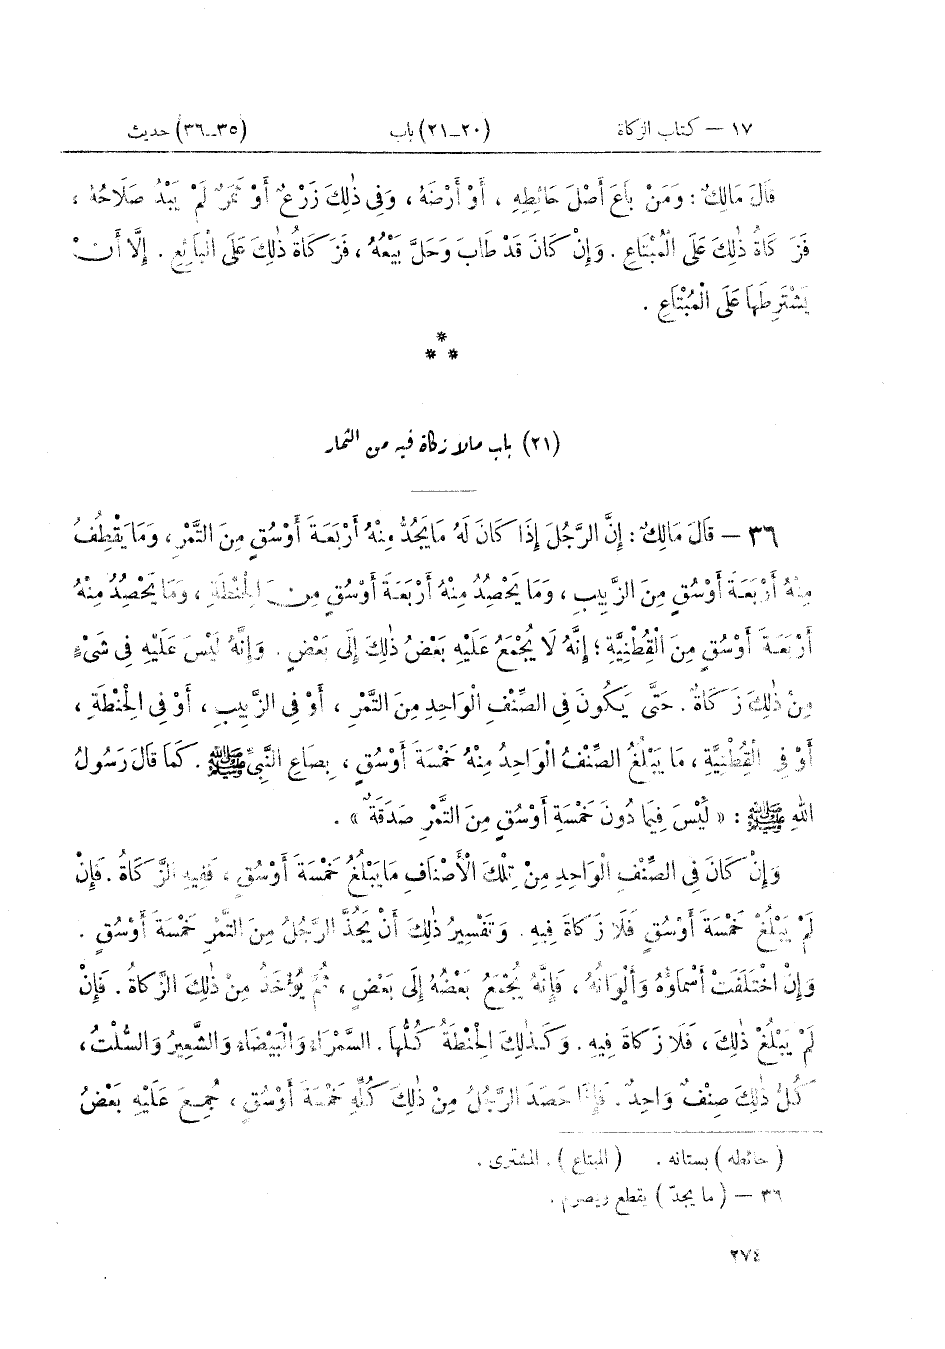 ١٧ — كتاب الزكاة (٢٠-٢١) باب (٣٥-٣٦) حديث
قَالَ مَالِكٌ : وَمَنْ بَاعَ أَصْلَ حَائِطِهِ ، أَوْ أَرْضَهُ ، وَفِي ذٰلِكَ زَرْعٌ أَوْ ثَمَرٌ لَمْ يَبْدُ صَلَاحُهُ ،
فَزَكَاةُ ذٰلِكَ عَلَى الْمُبْتَاعِ . وَإِنْ كَانَ قَدْ طَابَ وَحَلَّ بَيْعُهُ ، فَزَكَاةُ ذٰلِكَ عَلَى الْبَائِعِ . إِلَّا أَنْ
يَشْتَرِطَهَا عَلَى الْمُبْتَاعِ .
*
* *
(٢١) باب مالا زكاة فيه من الثمار
٣٦ — قَالَ مَالِكٌ : إِنَّ الرَّجُلَ إِذَا كَانَ لَهُ مَا يَجُدُّ مِنْهُ أَرْبَعَةَ أَوْسُقٍ مِنَ التَّمْرِ ، وَمَا يَقْطِفُ
مِنْهُ أَرْبَعَةَ أَوْسُقٍ مِنَ الزَّبِيبِ ، وَمَا يَحْصِدُ مِنْهُ أَرْبَعَةَ أَوْسُقٍ مِنَ الْحِنْطَةِ ، وَمَا يَحْصِدُ مِنْهُ
أَرْبَعَةَ أَوْسُقٍ مِنَ الْقِطْنِيَّةِ ؛ إِنَّهُ لَا يُجْمَعُ عَلَيْهِ بَعْضُ ذٰلِكَ إِلَى بَعْضٍ . وَإِنَّهُ لَيْسَ عَلَيْهِ فِي شَيْءٍ
مِنْ ذٰلِكَ زَكَاةٌ . حَتَّى يَكُونَ فِي الصِّنْفِ الْوَاحِدِ مِنَ التَّمْرِ ، أَوْ فِي الزَّبِيبِ ، أَوْ فِي الْحِنْطَةِ ،
أَوْ فِي الْقِطْنِيَّةِ ، مَا يَبْلُغُ الصِّنْفُ الْوَاحِدُ مِنْهُ خَمْسَةَ أَوْسُقٍ ، بِصَاعِ النَّبِيِّ ﷺ . كَمَا قَالَ رَسُولُ
اللهِ ﷺ : « لَيْسَ فِيمَا دُونَ خَمْسَةِ أَوْسُقٍ مِنَ التَّمْرِ صَدَقَةٌ » .
وَإِنْ كَانَ فِي الصِّنْفِ الْوَاحِدِ مِنْ تِلْكَ الْأَصْنَافِ مَا يَبْلُغُ خَمْسَةَ أَوْسُقٍ ، فَفِيهِ الزَّكَاةُ . فَإِنْ
لَمْ يَبْلُغْ خَمْسَةَ أَوْسُقٍ فَلَا زَكَاةَ فِيهِ . وَتَفْسِيرُ ذٰلِكَ أَنْ يَجُذَّ الرَّجُلُ مِنَ التَّمْرِ خَمْسَةَ أَوْسُقٍ .
وَإِنْ اخْتَلَفَتْ أَسْمَاؤُهُ وَأَلْوَانُهُ ، فَإِنَّهُ يُجْمَعُ بَعْضُهُ إِلَى بَعْضٍ ، ثُمَّ يُؤْخَذُ مِنْ ذٰلِكَ الزَّكَاةُ . فَإِنْ
لَمْ يَبْلُغْ ذٰلِكَ ، فَلَا زَكَاةَ فِيهِ . وَكَذٰلِكَ الْحِنْطَةُ كُلُّهَا . السَّمْرَاءُ وَالْبَيْضَاءُ وَالشَّعِيرُ وَالسُّلْتُ ،
كُلُّ ذٰلِكَ صِنْفٌ وَاحِدٌ . فَإِذَا حَصَدَ الرَّجُلُ مِنْ ذٰلِكَ كُلِّهِ خَمْسَةَ أَوْسُقٍ ، جُمِعَ عَلَيْهِ بَعْضُ
( حائطه ) بستانه . ( المبتاع ) . المشترى .
٣٦ — ( ما يجدّ ) يقطع ويصرم .
٢٧٤